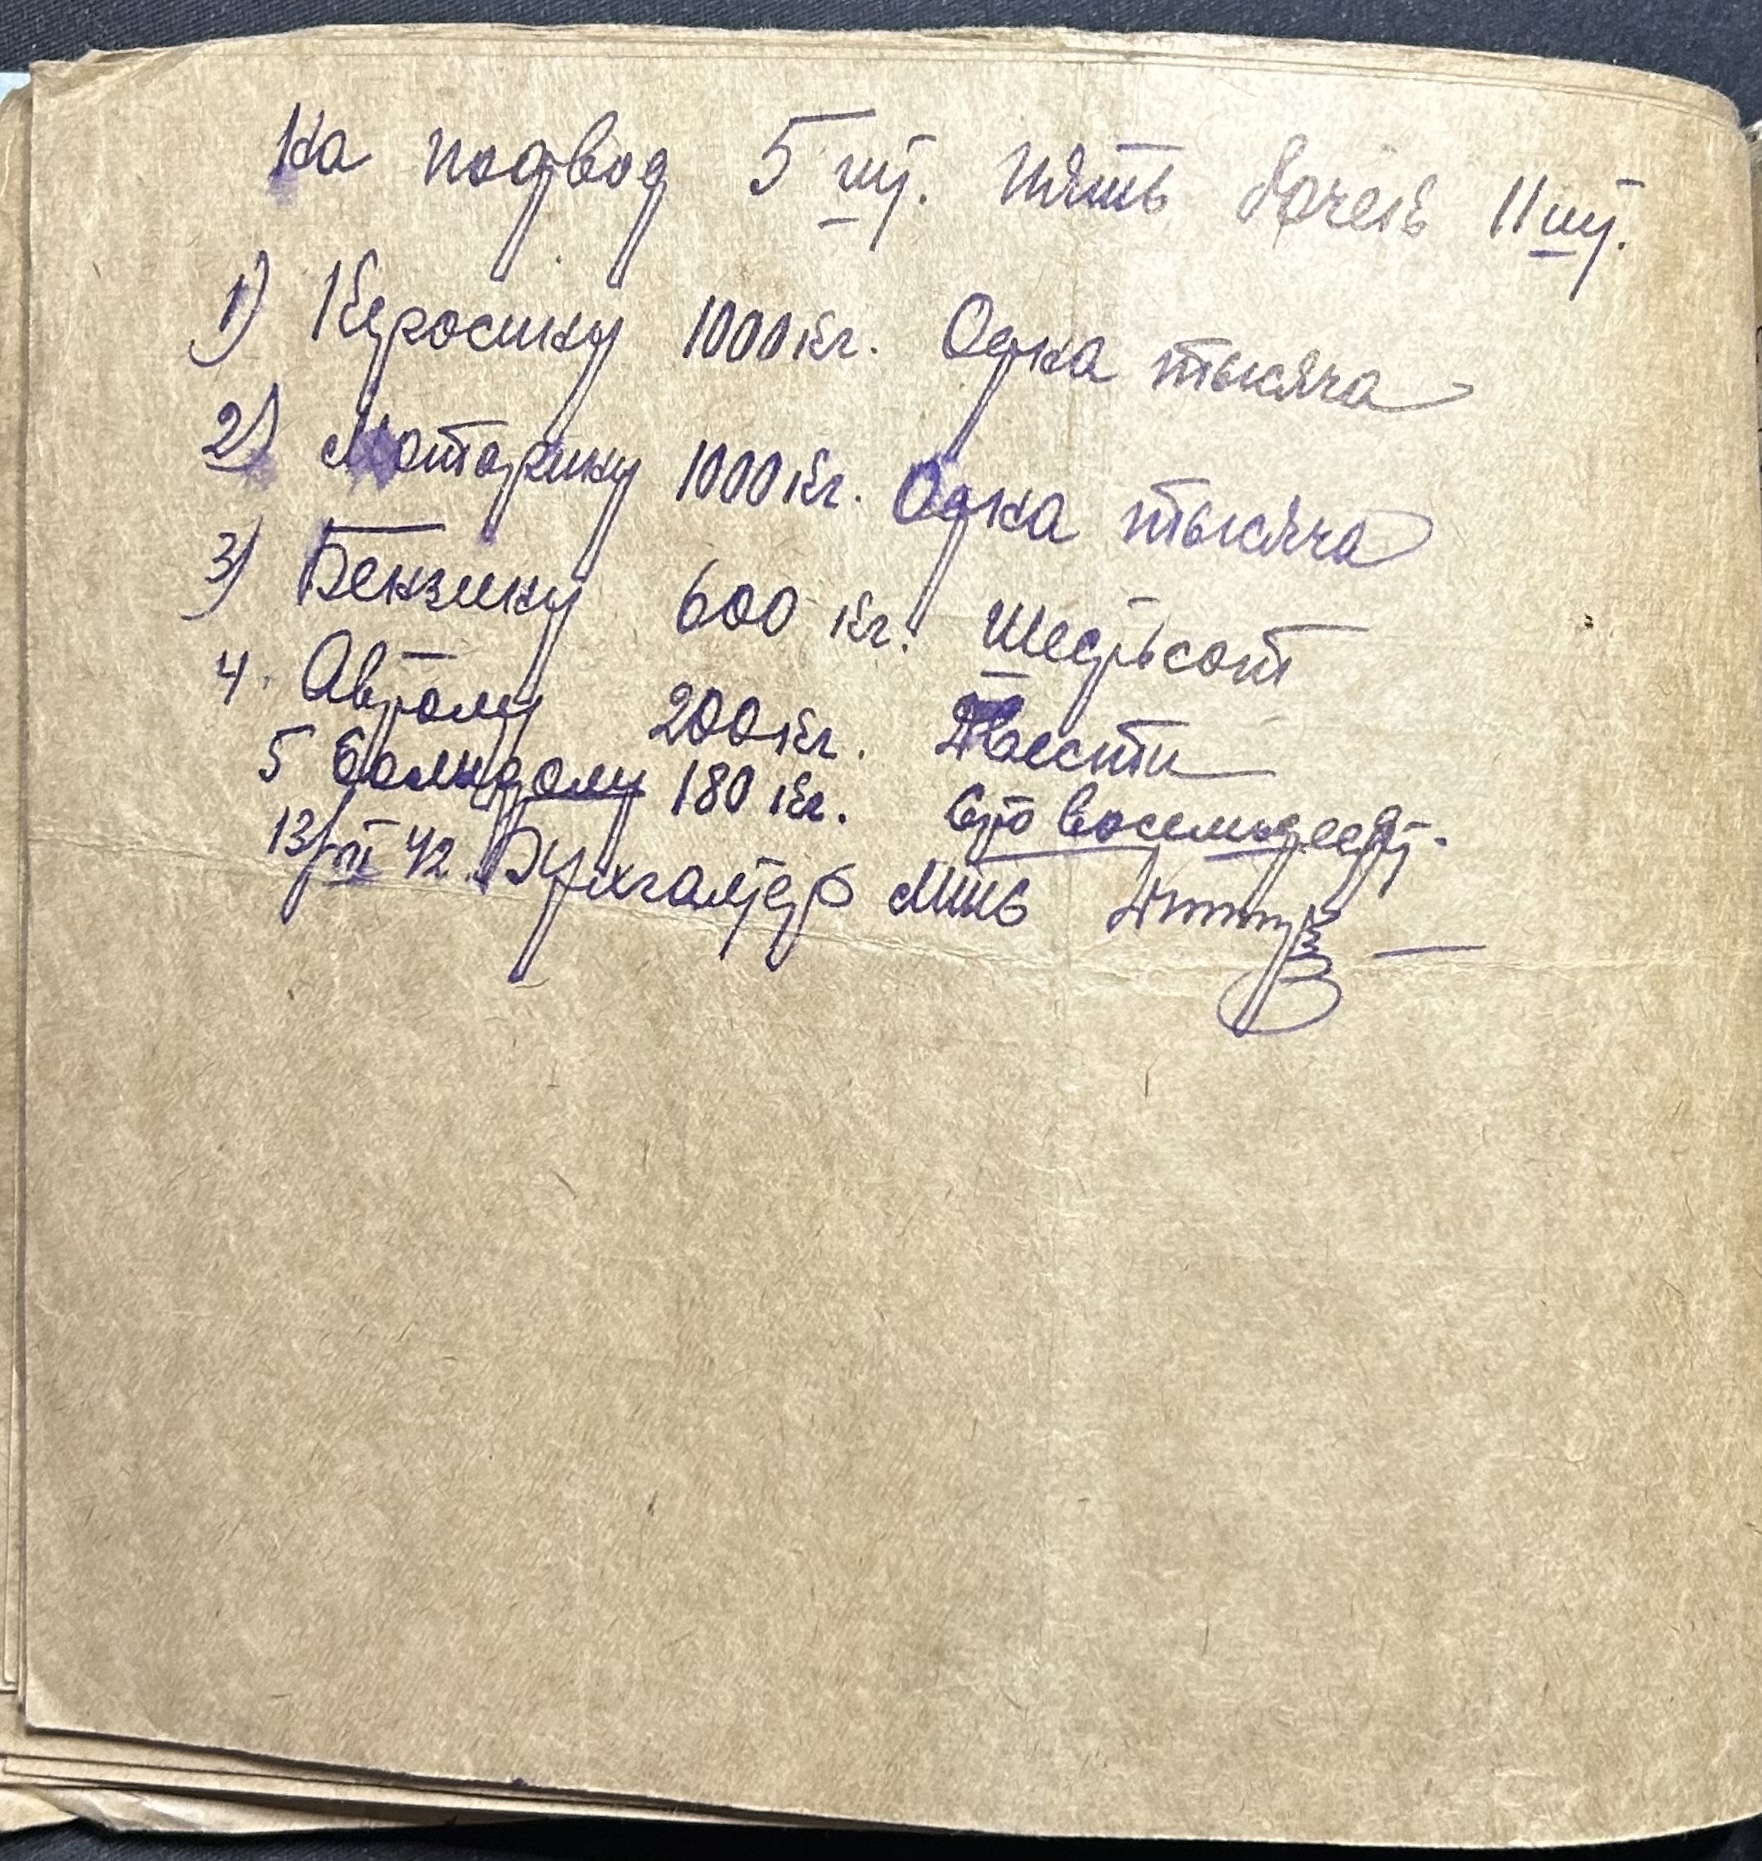 На подвод 5 шт. пять бочек 11 шт.
1) Керосину 1000 кг. Одна тысяча
2) Моторину 1000 кг. Одна тысяча
3) Бензину 600 кг. Шестьсот
4. Автолу 200 кг. Двести
5 Солидолу 180 кг. Сто восемьдесят.
13/VI 42. Бухгалтер МТС